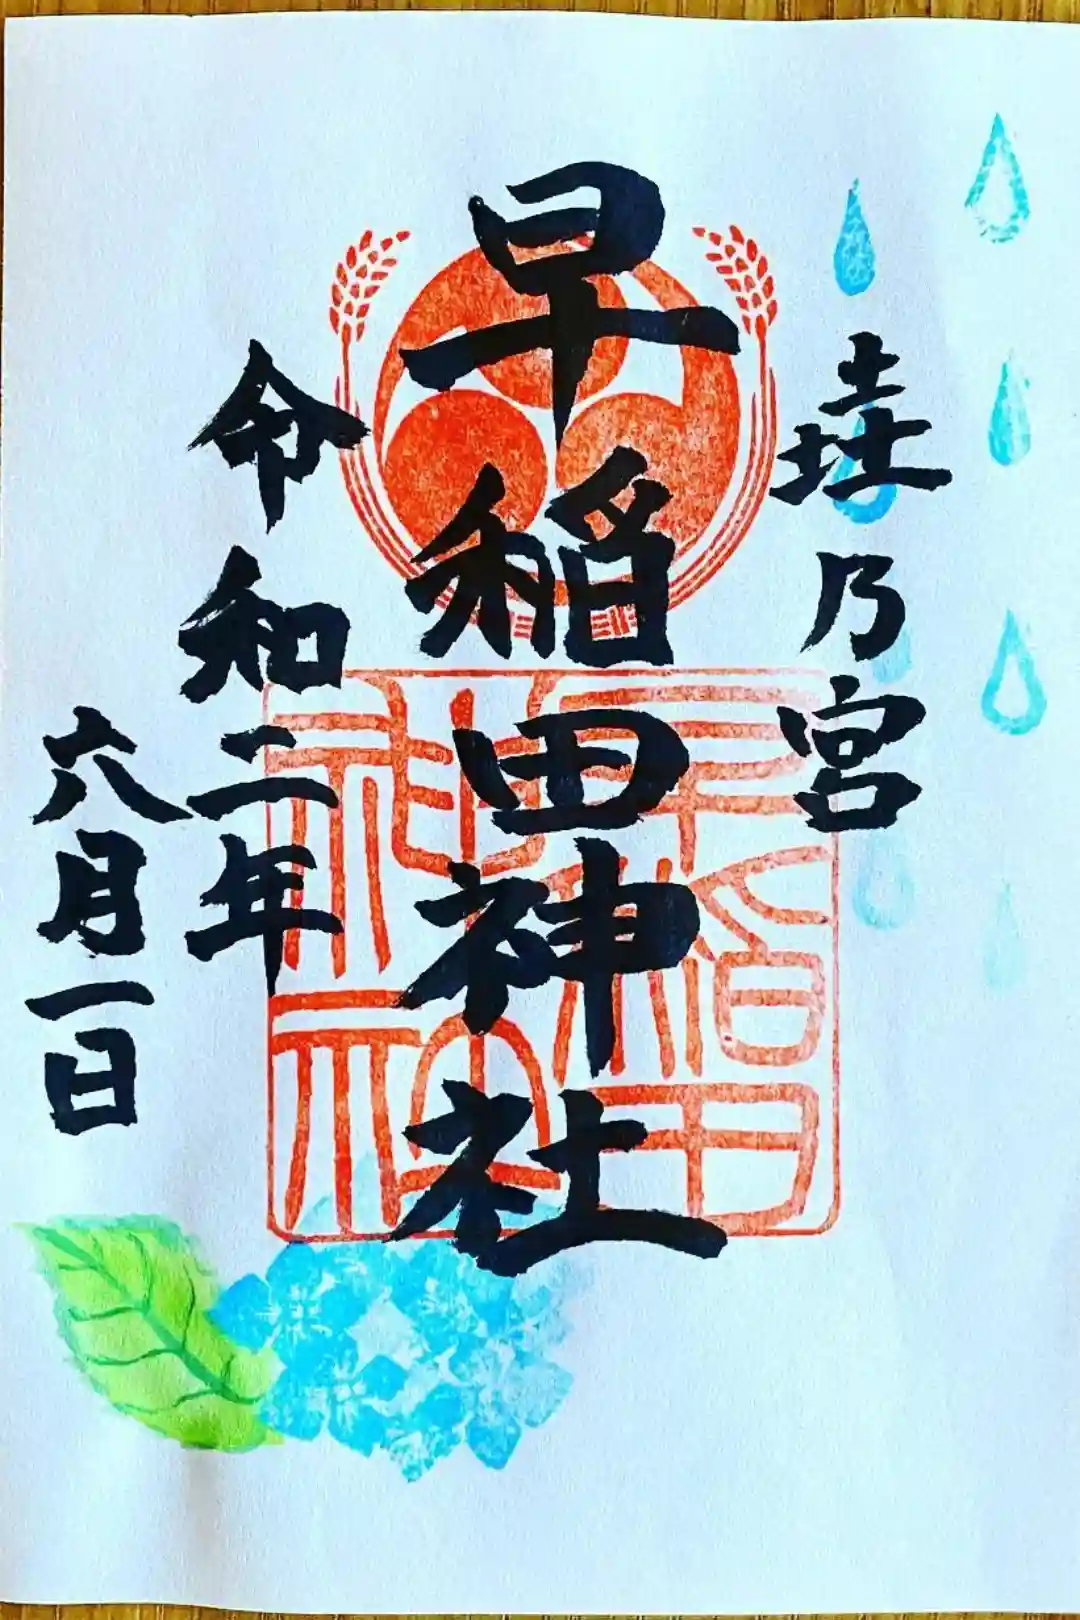 垚乃宮
早稲田神社
令和二年
六月一日
早稲田
神社